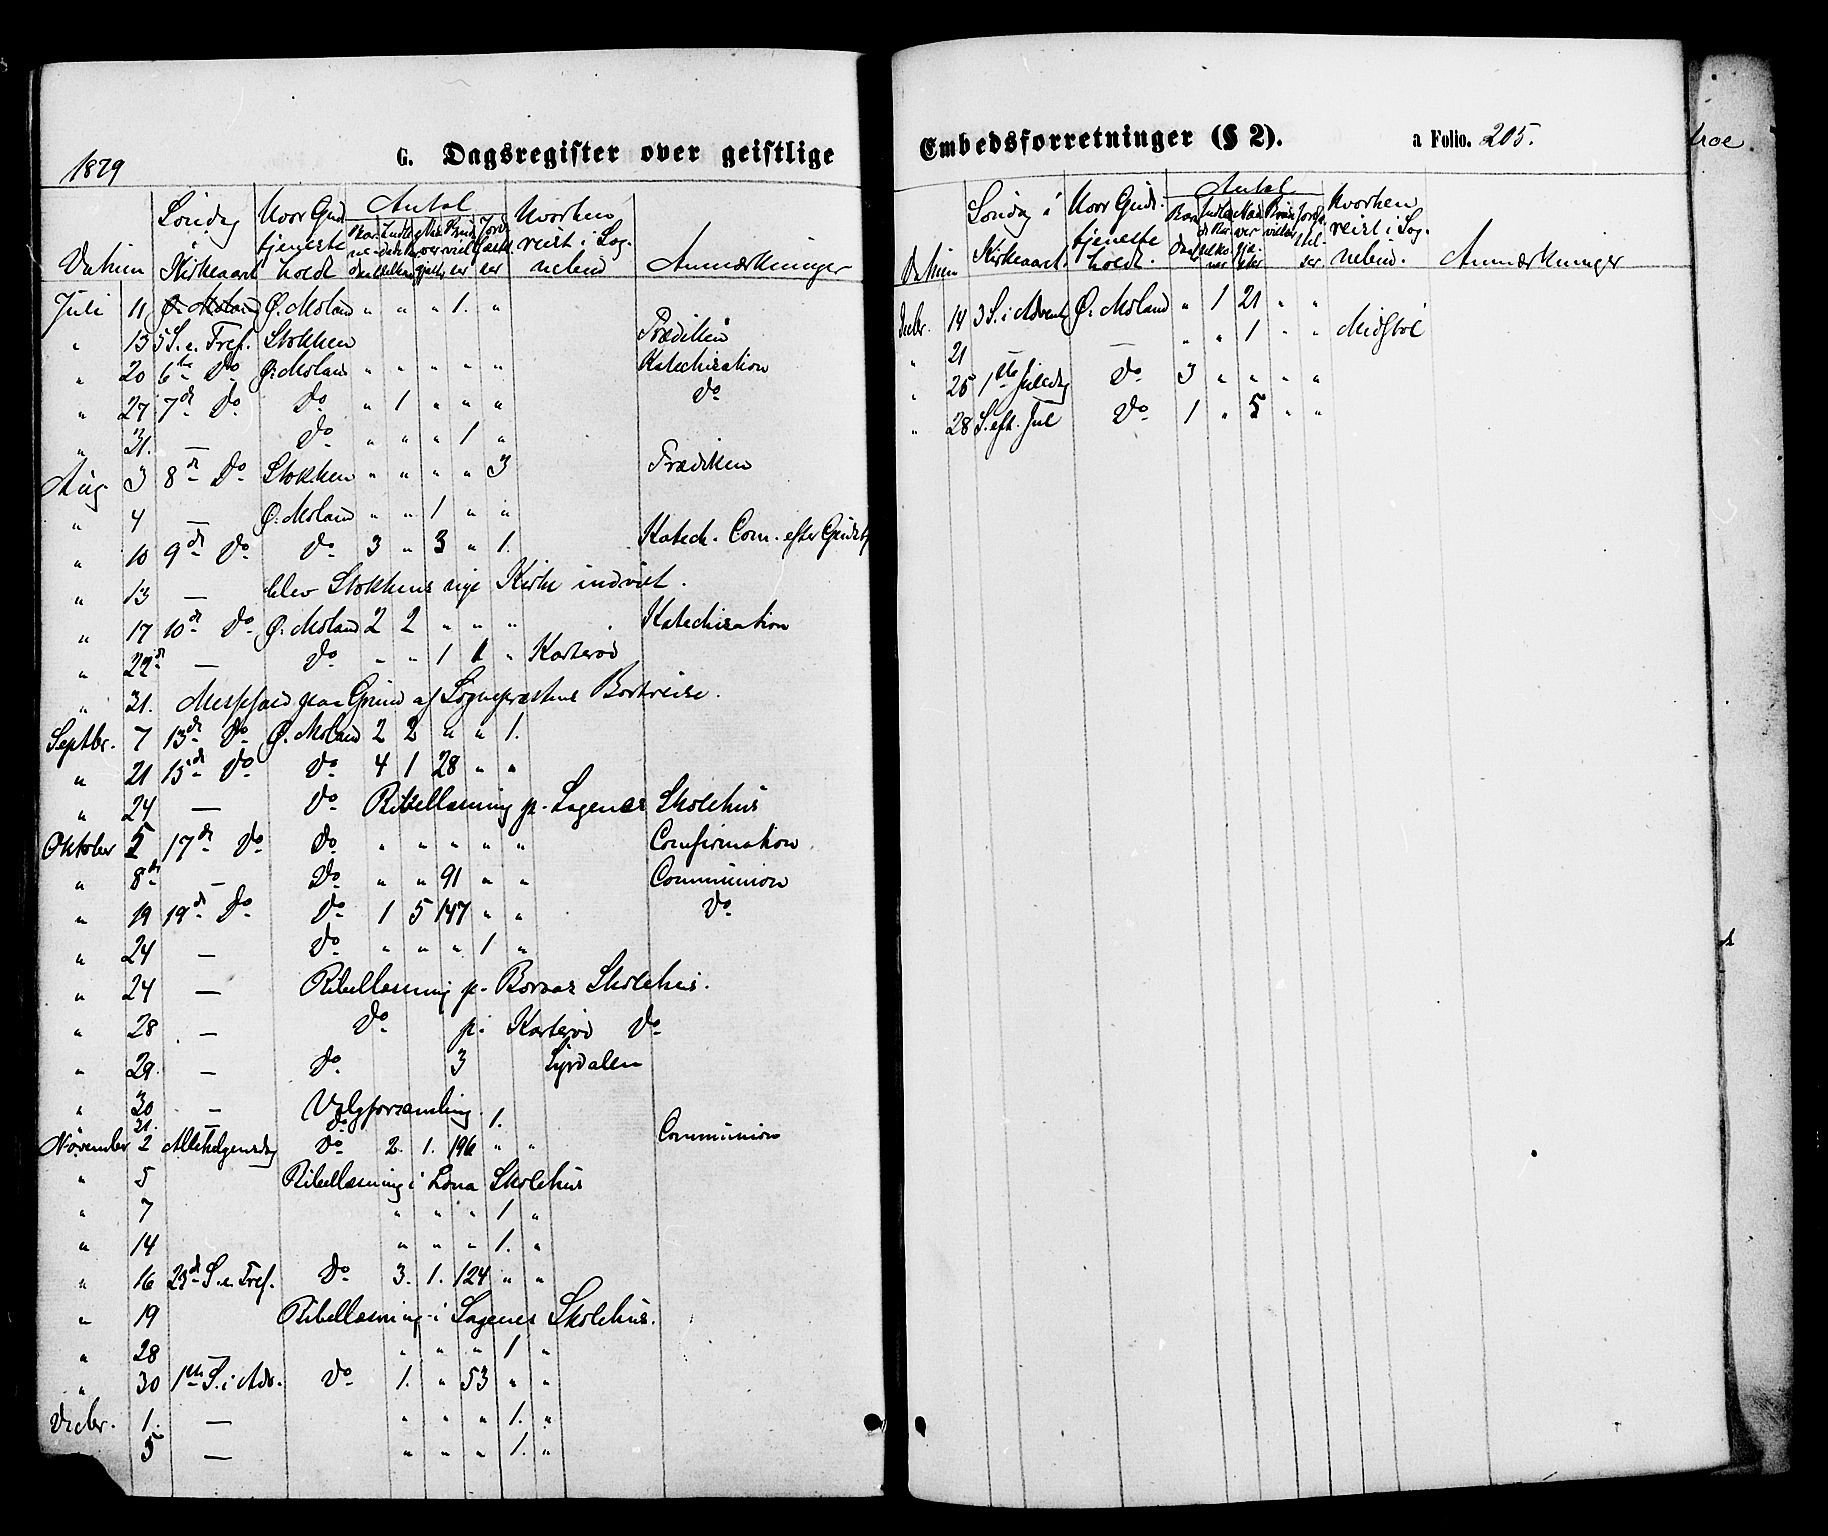 1879
G. Dagsregister over geistlige
Datum Søndag i Kirkeaaret Hvor Gudstjeneste holdt Antal Hvorhen reist i Sognebud Anmærkninger
Juli 11 Ø. Moland Ø. Moland " " " 1. "
" 13 5 S. e. Tref. Stokken Prædiken
" 20 6te Do Ø. Moland " " " " " Katechisation
" 27 7de Do Do " 1 " " " Do
" 31. — Do " " " 1 "
Aug. 3 8de Do Stokken " " " " 3 Prædiken
" 4 — Ø. Moland " " 1 " "
" 10 9de Do Do 3 " 3 " 1. Katech. Com. efter Gudstj
" 13 — blev Stokkens nye Kirke indviet.
" 17 10de Do Ø. Moland 2 2 " " " Katechisation
" 22de — Do " " 1 1 " Kasterød
" 31. Messefald paa Grund af Sognepræstens Bortreise.
Septbr. 7 13de Do Ø. Moland 2 2 " " 1.
" 21 15de Do Do 4 1 28 " "
" 24 — Do Bibellæsning p. Lagenes Skolehus
Oktober 5 17de Do Do " " " " " Confirmation
" 8de — Do " " 91 " " Communion
" 19 19de Do Do 1 5 147 " " Do
" 24 — Do " " " 1 "
" 24 — Bibellæsning p. Boraas Skolehus.
" 28 — Do p. Kasterød Do
" 29. — Do 3 Lyrdalen
" 30 — Valgforsamling.
31. — Do 1.
November 2 Allehelgensdag Do 2. 1. 196 " " Communion
" 5 Bibellæsning i Lona Skolehus
" 7 " " " 1 "
" 14 " " " 1. "
" 16 23de S. e. Tref. Do 3. 1. 124 " "
" 19 Bibellæsning i Lagenes Skolehus.
" 28 — " " " 1 "
" 30 1ste S. i Adv. Do 1. " 53 " "
Decbr. 1. — " " " 1. "
5 — " " " 1. "
Embedsforretninger (§ 2). a Folio. 205.
Datum Søndag i Kirkeaaret Hvor Gudstjeneste holdt. Antal Hvorhen reist i Sognebud. Anmærkninger
Decbr. 14 3 S. i Advent Ø. Moland " 1 21 " "
" 21 — — " " 1 " " Midstøl
" 25 1ste Juledag Do 3 " " " "
" 28 S. eft. Jul Do 1 " 5 " "